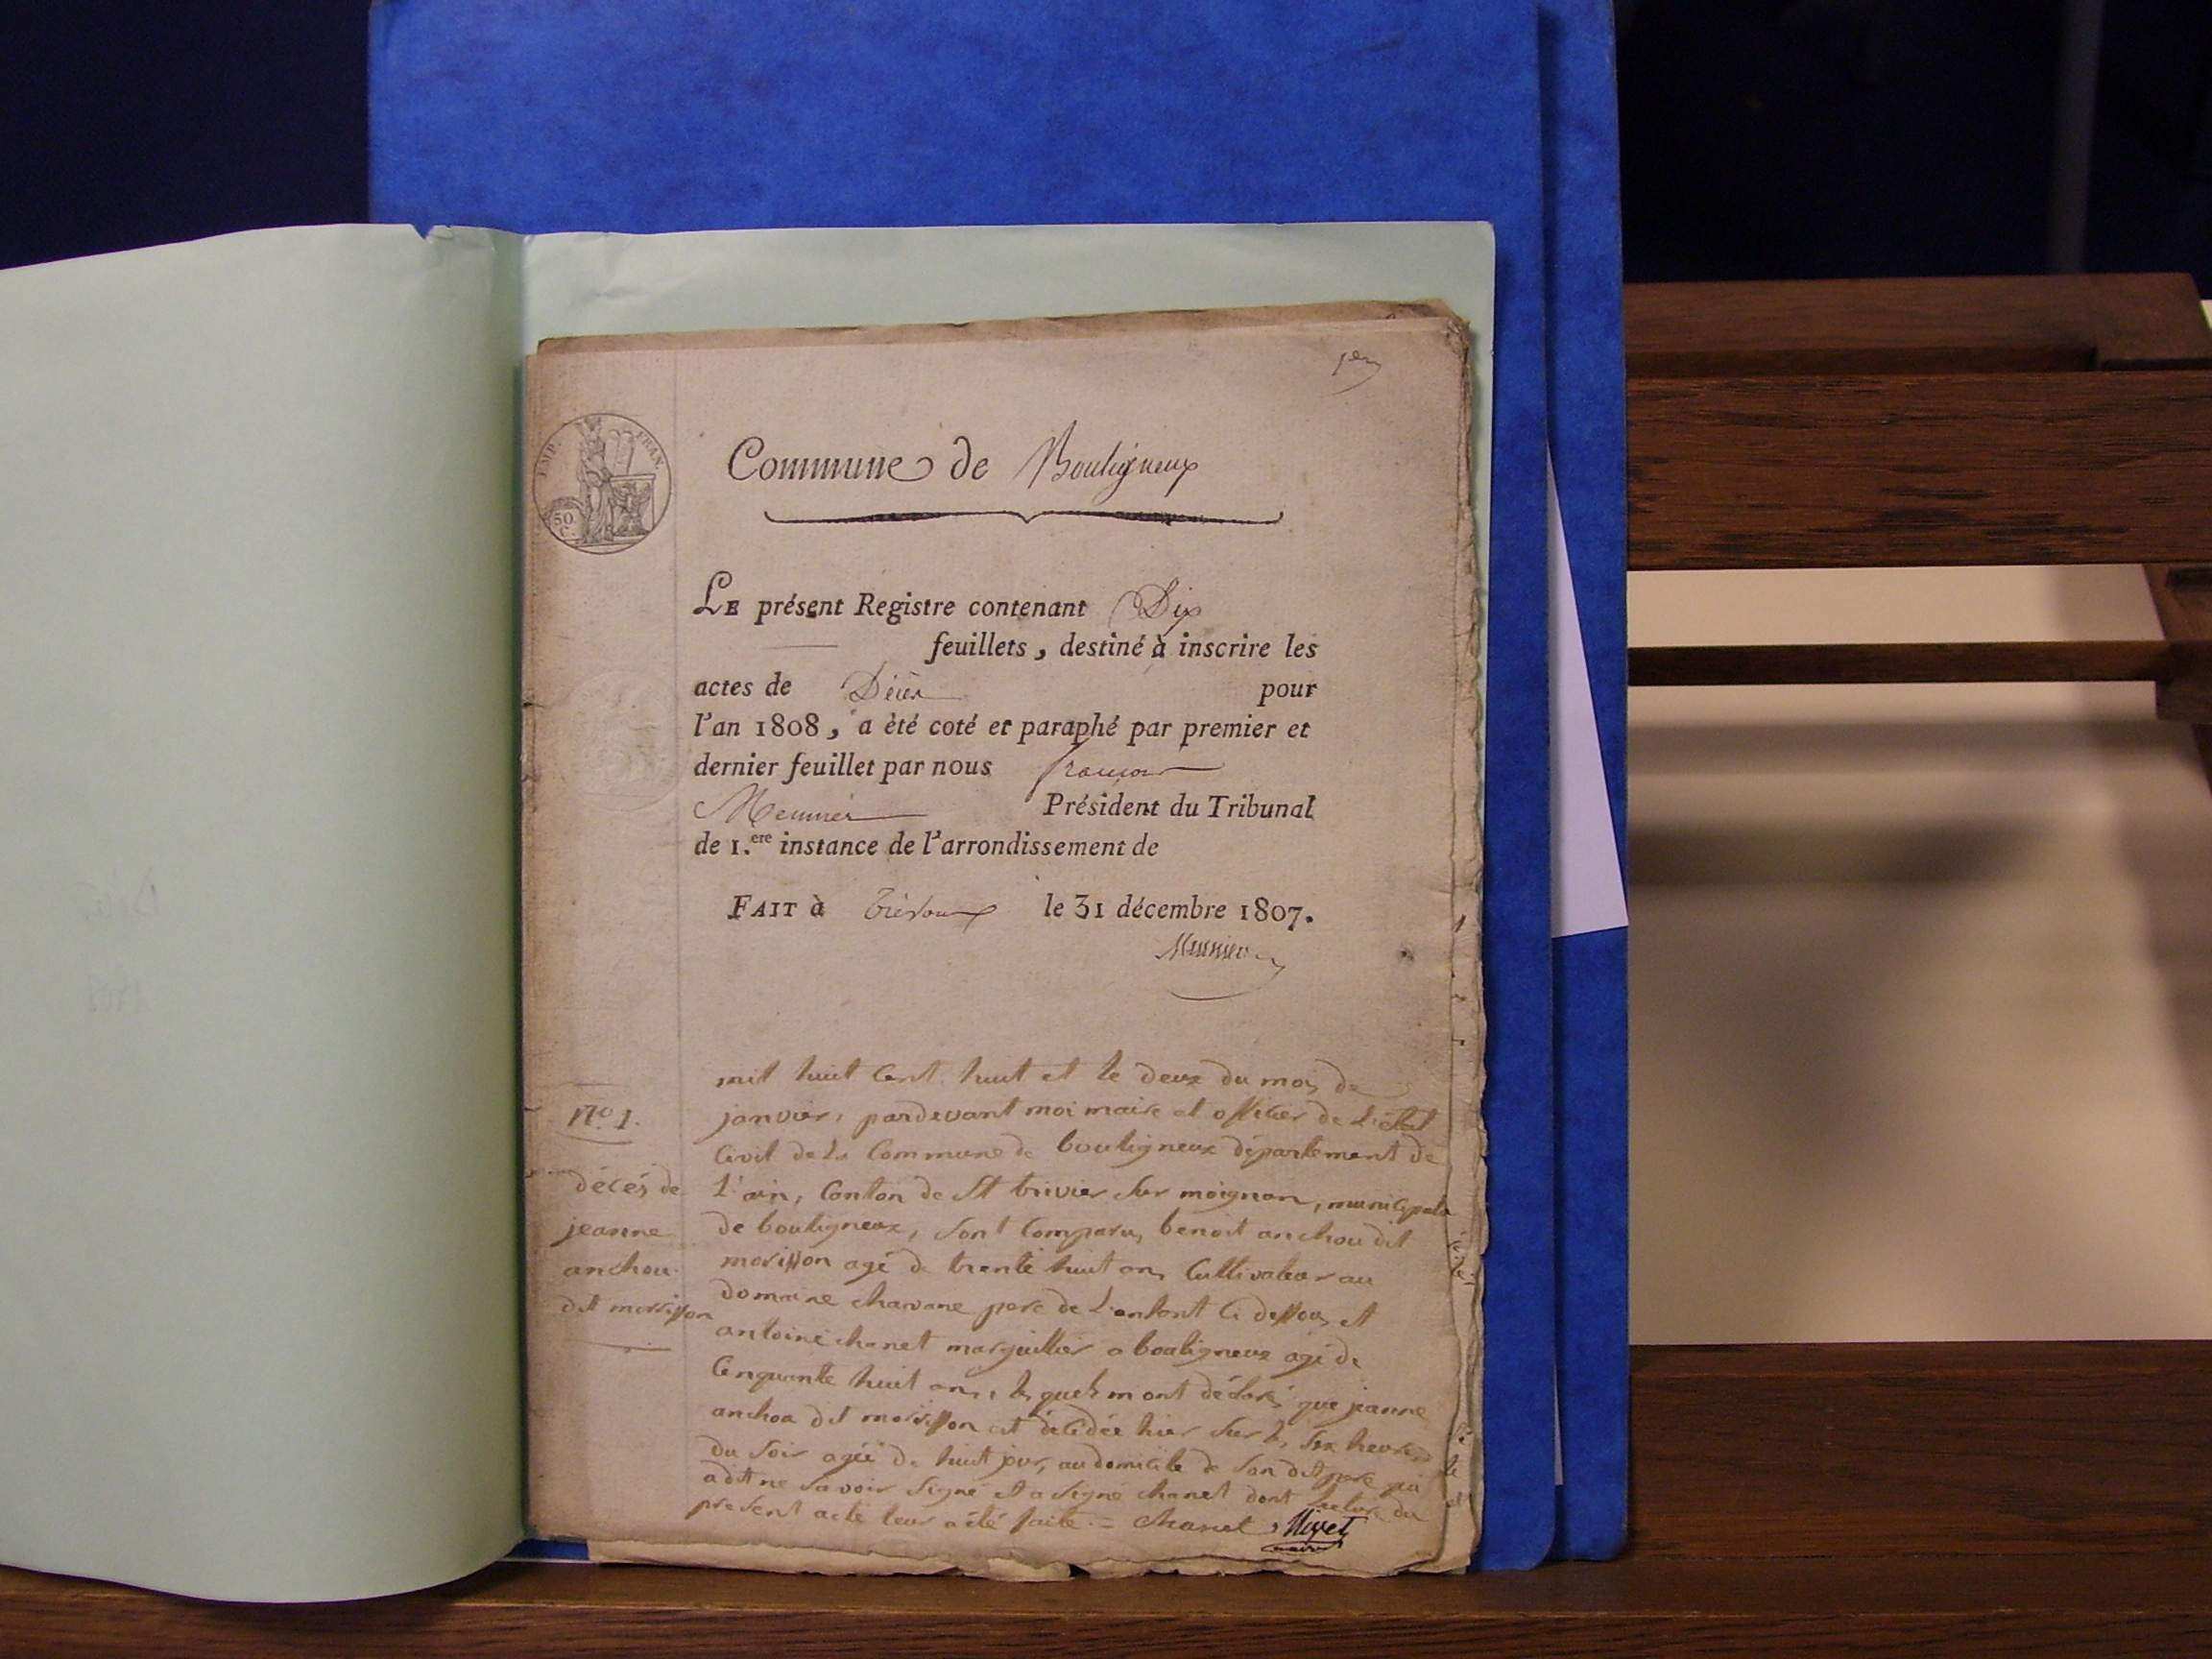 1er
IMP. FRAN.
50 C.
Commune de Bouligneux
LE présent Registre contenant Dix
feuillets, destiné à inscrire les
actes de Décès pour
l'an 1808, a été coté et paraphé par premier et
dernier feuillet par nous françois
Meunier Président du Tribunal
de 1.ere instance de l'arrondissement de
FAIT à Trévoux le 31 décembre 1807.
Meunier
mil huit Cent huit et le deux du mois de
N.o 1.
janvier, pardevant moi maire et officier de L'état
Civil de La Commune de bouligneux département de
décés de
L'ain, Canton de St trivier sur moignan, municipala
jeanne
de bouligneux, sont Comparus benoit anchou dit
anchou
morisson agé de trente huit ans Cultivateur au
dit morisson
domaine chavane pere de L'enfant Ci dessous et
antoine chanet marguillier a bouligneux agé de
Cinquante huit ans, les quels m'ont déclaré que jeanne
anchou dit morisson est décédée hier sur les six heures
du soir agée de huit jours au domicile de son dit pere qui
a dit ne savoir signé et a signé chanet dont Lecture du
present acte leur a été faite = chanet Nivet
maire